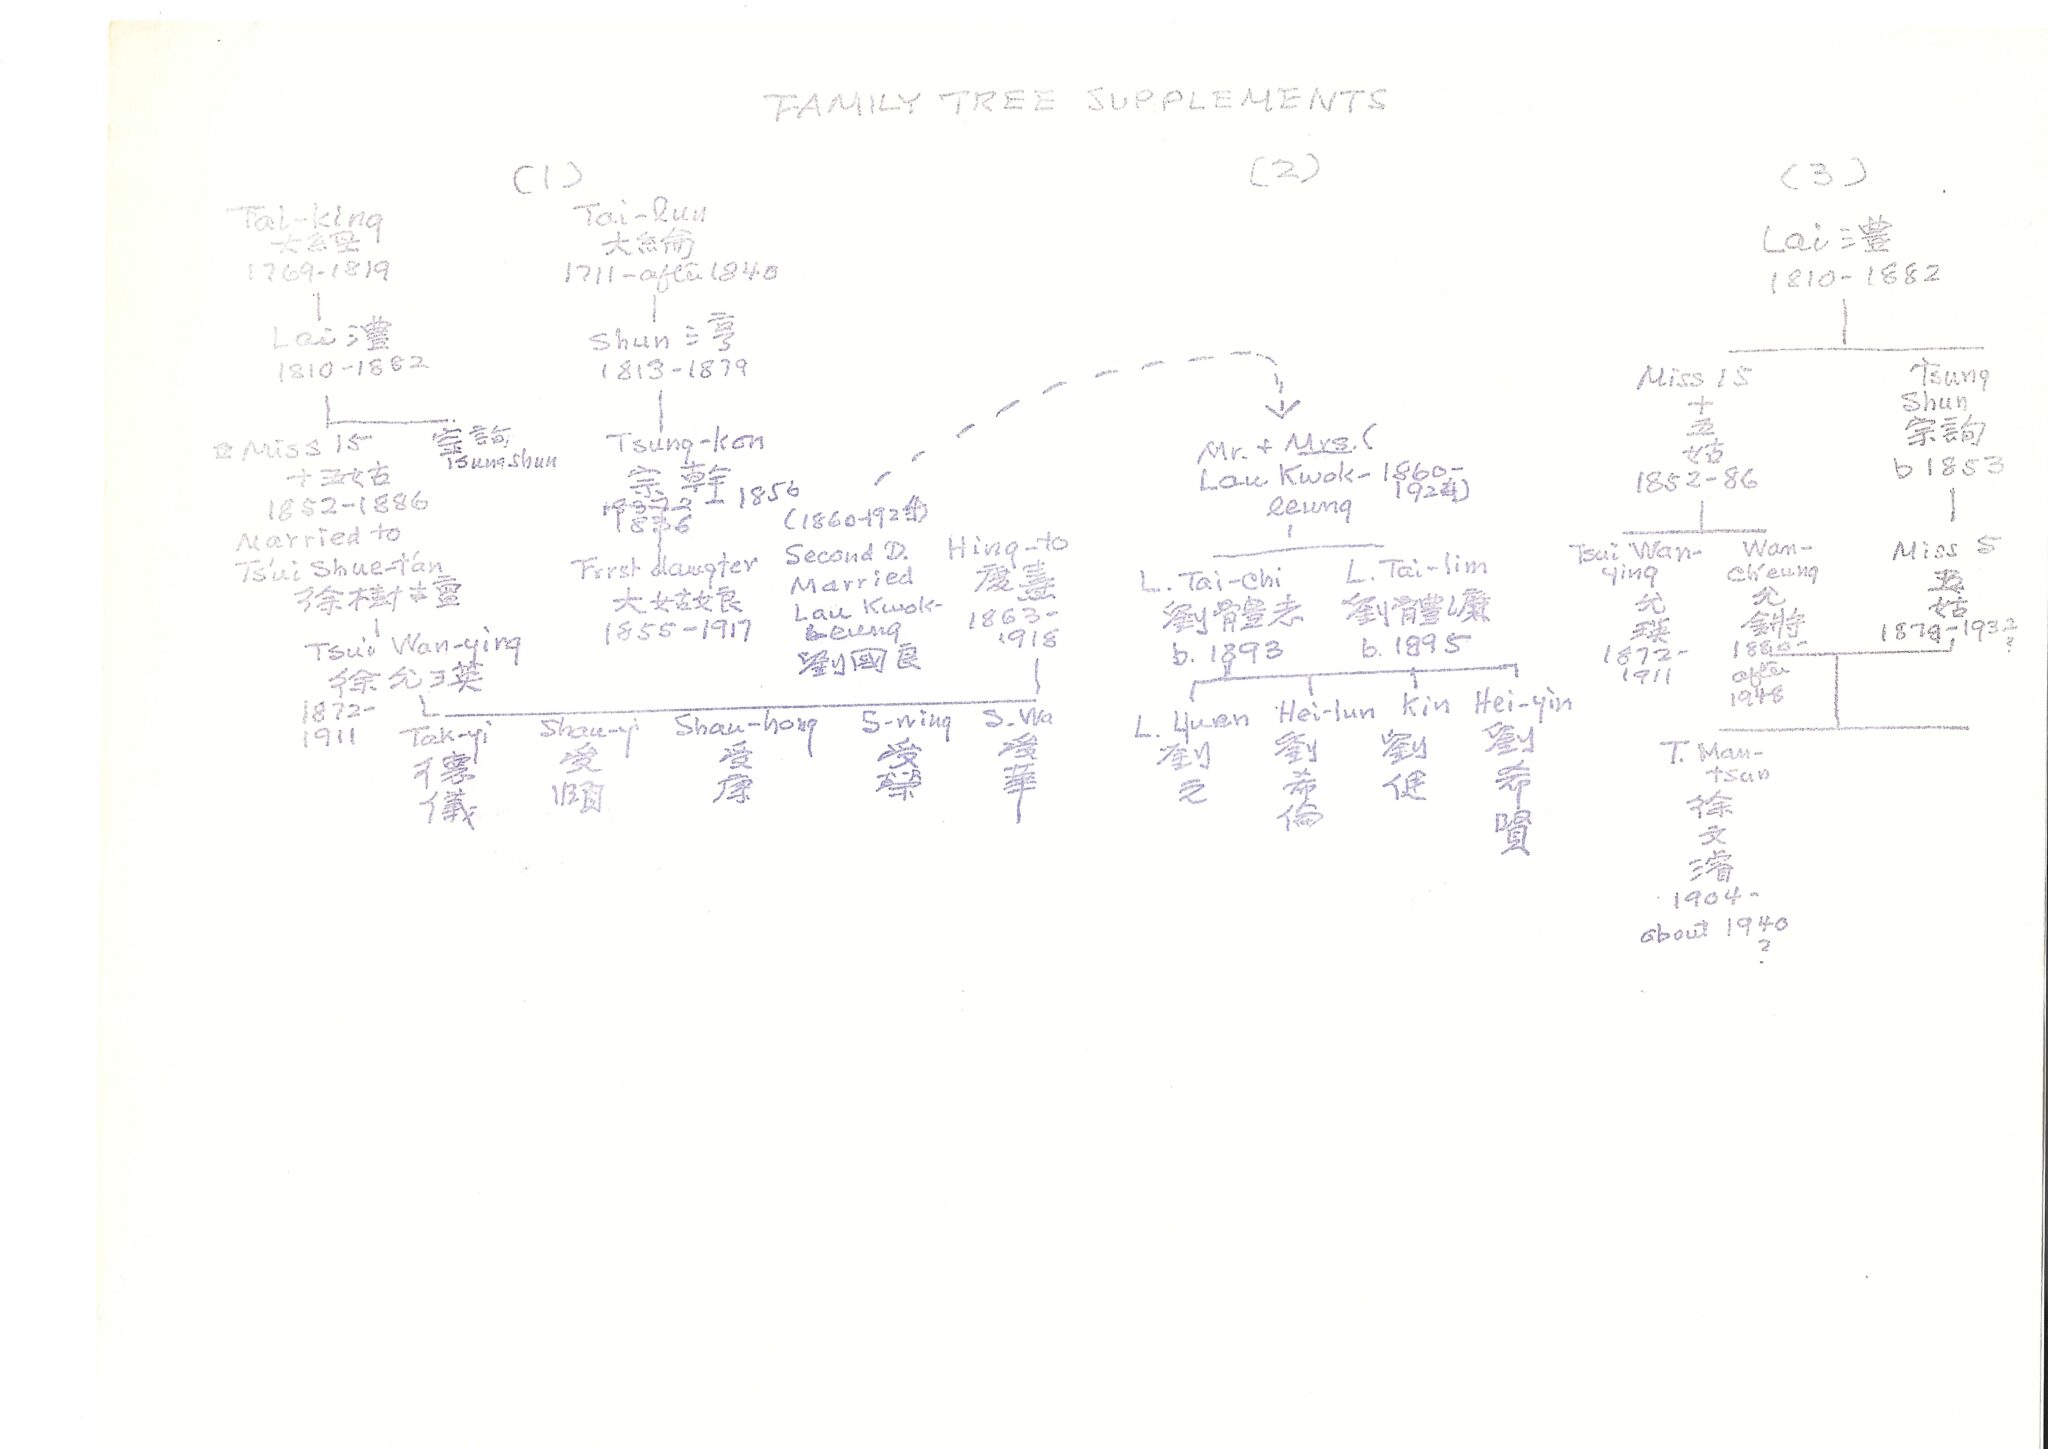 FAMILY TREE SUPPLEMENTS
(1)
Tai-king
大經
1769-1819
Lai 灃
1810-1882
Miss 15
十五姑
1852-1886
Married to
Ts'ui Shue-t'an
徐樹壇
Tsui Wan-ying
徐允瑛
1872-
1911
宗詢
Tsung Shun
Tai-lun
大綸
1711-after 1840
Shun
1813-1879
Tsung-kon
宗幹
1856
1836
First daugter
大姑娘
1855-1917
(1860-1924)
Second D.
Married
Lau Kwok-
Leung
劉國良
Hing-to
慶燾
1863-
1918
Tak-yi
德
儀
Shau-yi
受
頤
Shau-hong
受
康
S-wing
受
榮
S-Wa
受
華
(2)
Mr. + Mrs. (
Lau Kwok- 1860-
leung 1924)
L. Tai-chi
劉體志
b. 1893
L. Tai-lim
劉體濂
b. 1895
L. Yuen
劉
元
Hei-lun
劉
希
倫
Kin
劉
健
Hei-yin
劉
希
賢
(3)
Lai 灃
1810-1882
Miss 15
十
五
姑
1852-86
Tsung
Shun
宗詢
b 1853
Tsui Wan-
ying
允
瑛
1872-
1911
Wan-
Ch'eung
允
鏘
1880-
after
1948
Miss 5
五
姑
1879-1932
?
T. Man-
tsun
徐
文
濬
1904-
about 1940
?